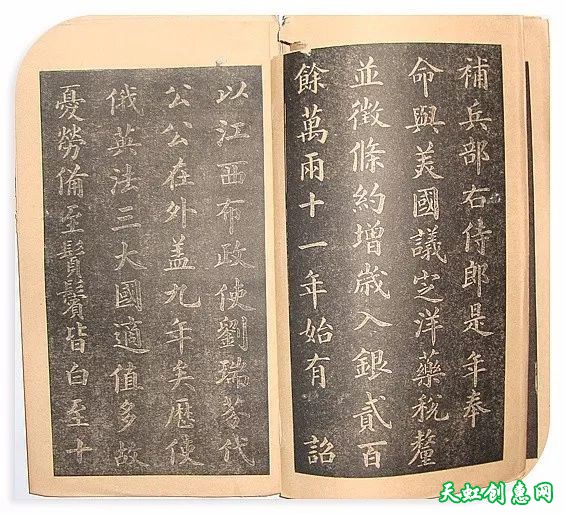 補兵部右侍郎是年奉
命與英國議定洋藥稅釐
並徵條約增歲入銀貳百
餘萬兩十一年始有 詔
以江西布政使劉瑞芬代
公公在外蓋九年矣歷使
俄英法三大國適值多故
憂勞備至鬢鬚皆白至十
天虹创意网